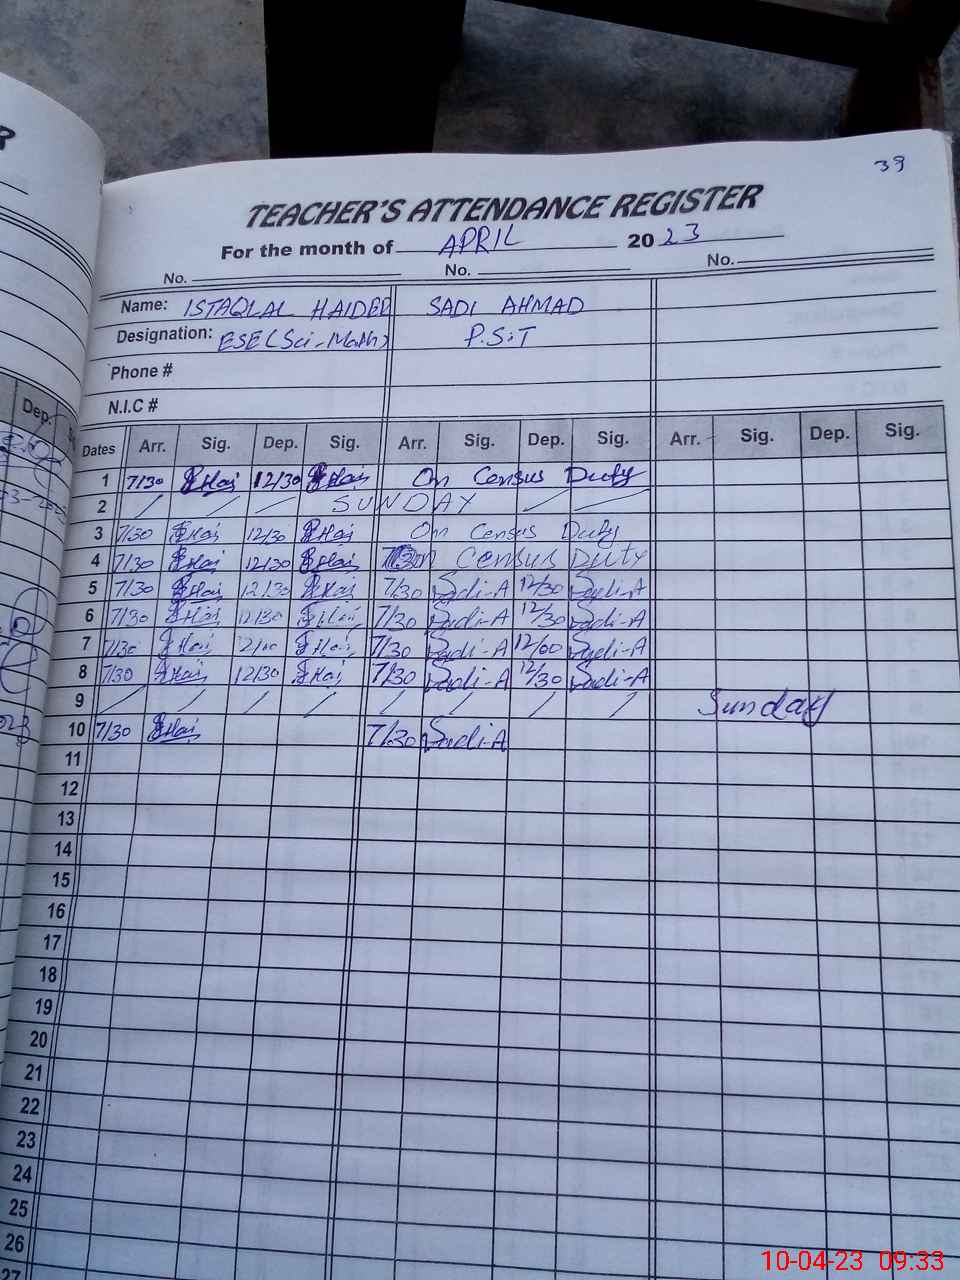 39
TEACHER'S ATTENDANCE REGISTER
For the month of APRIL 2023
No. No. No.
Name: ISTAQLAL HAIDER SADI AHMAD
Designation: ESE (Sci-Math) P.S.T
Phone #
N.I.C #
Dep.
Dates Arr. Sig. Dep. Sig. Arr. Sig. Dep. Sig. Arr. Sig. Dep. Sig.
1 7/30 Hai 12/30 Hai On Census Duty
2 SUNDAY
3 7/30 Hai 12/30 Hai On Census Duty
4 7/30 Hai 12/30 Hai On Census Duty
5 7/30 Hai 12/30 Hai 7/30 Sadi-A 12/30 Sadi-A
6 7/30 Hai 12/30 Hai 7/30 Sadi-A 12/30 Sadi-A
7 7/30 Hai Hai 7/30 Sadi-A 12/00 Sadi-A
8 7/30 Hai 12/30 Hai 7/30 Sadi-A 12/30 Sadi-A
9 Sunday
10 7/30 Hai 7/30 Sadi-A
11
12
13
14
15
16
17
18
19
20
21
22
23
24
25
26
27
10-04-23 09:33